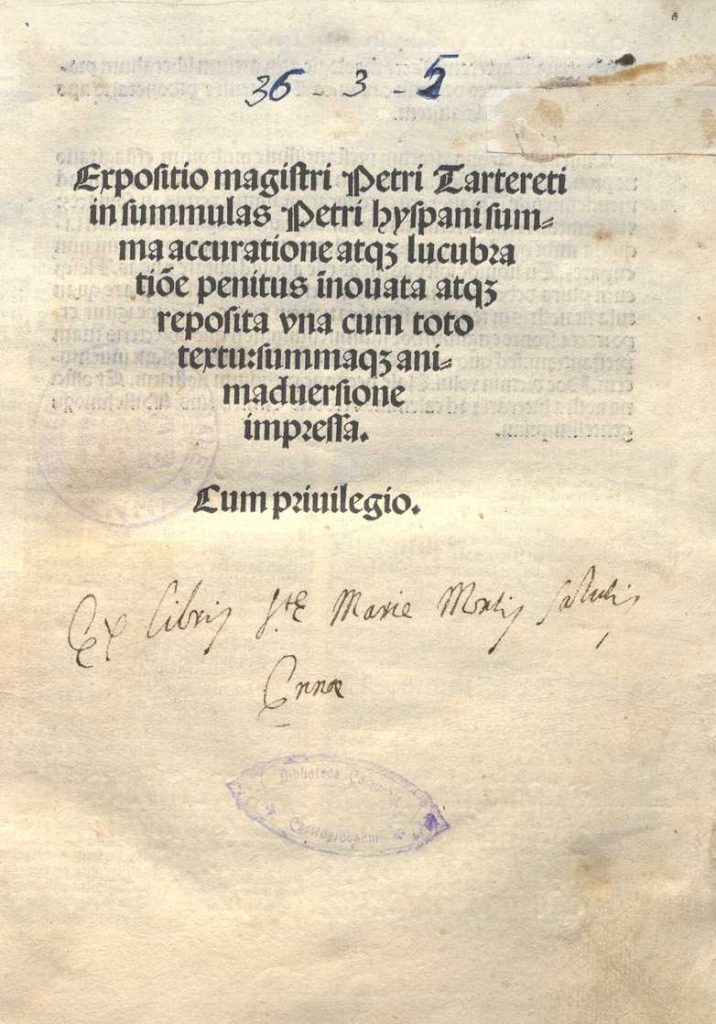 36 - 3 - 5
Expositio magistri Petri Tartereti
in summulas Petri hyspani sum⸗
ma accuratione atqꝫ lucubra
tiõe penitus īnouata atqꝫ
reposita vna cum toto
textu:summaqꝫ ani⸗
maduersione
impressa.
Cum priuilegio.
Ex libris Stę Marie Montis Salutis
Ennæ
Biblioteca Comunale
Castrogiovanni